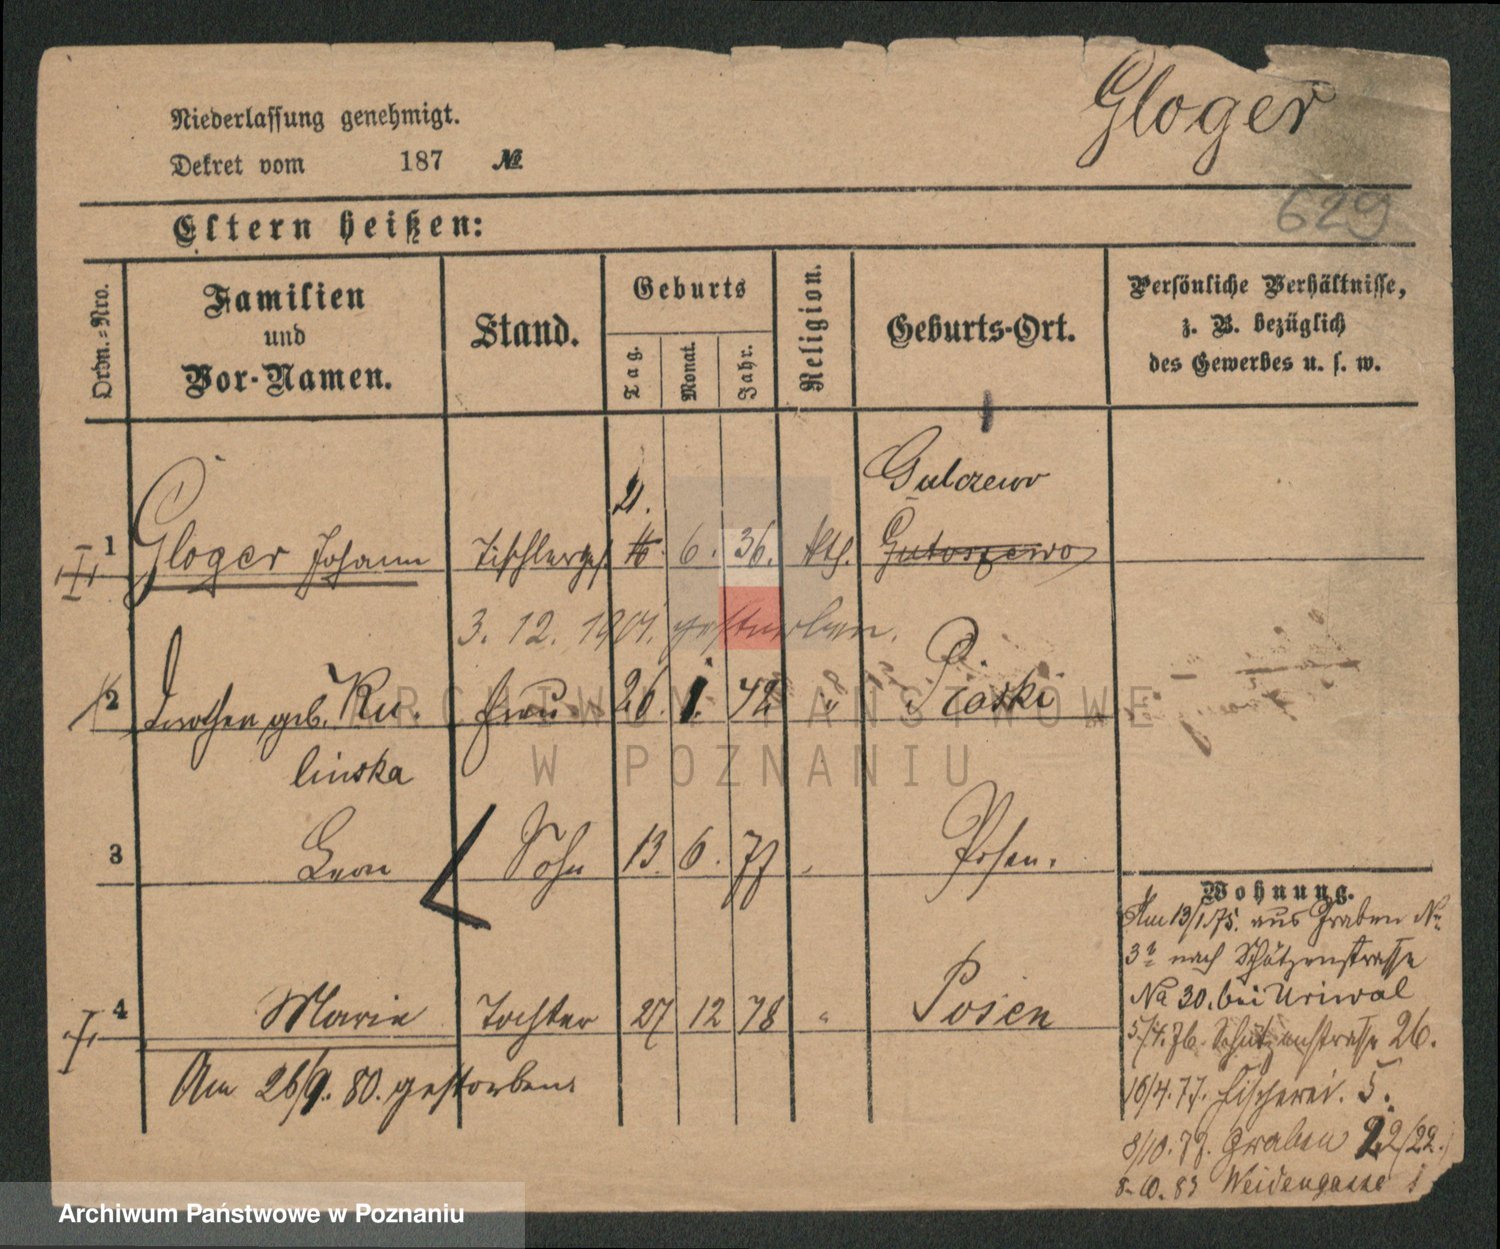 Gloger
Niederlassung genehmigt.
Dekret vom 187 №
629
Eltern heißen:
Ordn.-Nro.
Familien
und
Vor-Namen.
Stand.
Geburts
Tag.
Monat.
Jahr.
Religion.
Geburts-Ort.
Persönliche Verhältnisse,
z. B. bezüglich
des Gewerbes u. s. w.
Gulczewo
1 Gloger Johann Tischlerges. 6. 36. kth. Gutoszewo
3. 12. 1901. gestorben.
2 Dorothea geb. Ku- Frau 26. 1. 42 " Piaski
linska
3 Leon Sohn 13. 6. 77 Posen.
4 Marie Tochter 27 12 78 " Posen
Am 26/9. 80. gestorben.
Wohnung.
Am 13/1 75. aus Graben No
3a nach Schützenstrasse
No 30. bei Uriwal
5/4. 76. Schützenstrasse 26.
16/4. 77. Fischerei. 5.
8/10. 79. Graben 22/22.
8.10.83 Weidengasse 1
ARCHIWUM PAŃSTWOWE
W POZNANIU
Archiwum Państwowe w Poznaniu